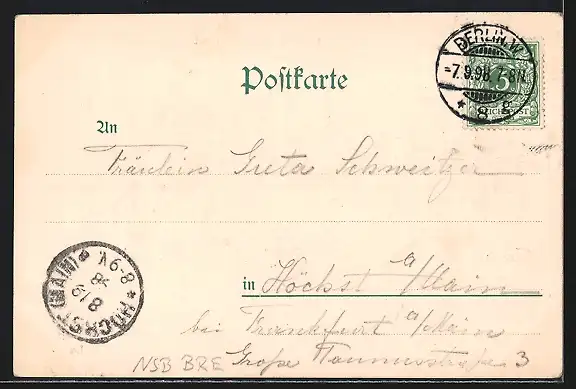 BERLIN, W.
-7.9.98. 7-8N.
* 8 g
5
REICHSPOST
Postkarte
An
Fräulein Greta Schweitzer
in Höchst a/Main
bei Frankfurt a/Main
Große Taunusstraße 3
HÖCHST (MAIN)
8/9
98
8-9V.
NSB BRE